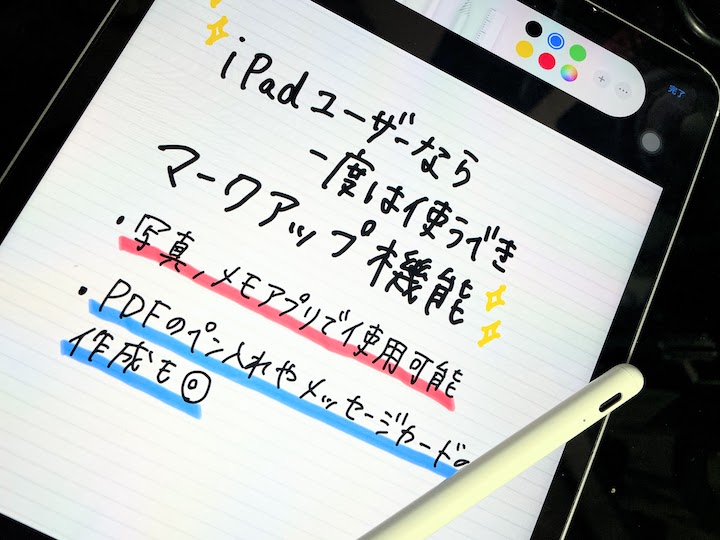 完了
iPadユーザーなら
一度は使うべき
マークアップ機能
・写真,メモアプリで使用可能
・PDFのペン入れやメッセージカードの
作成も◎